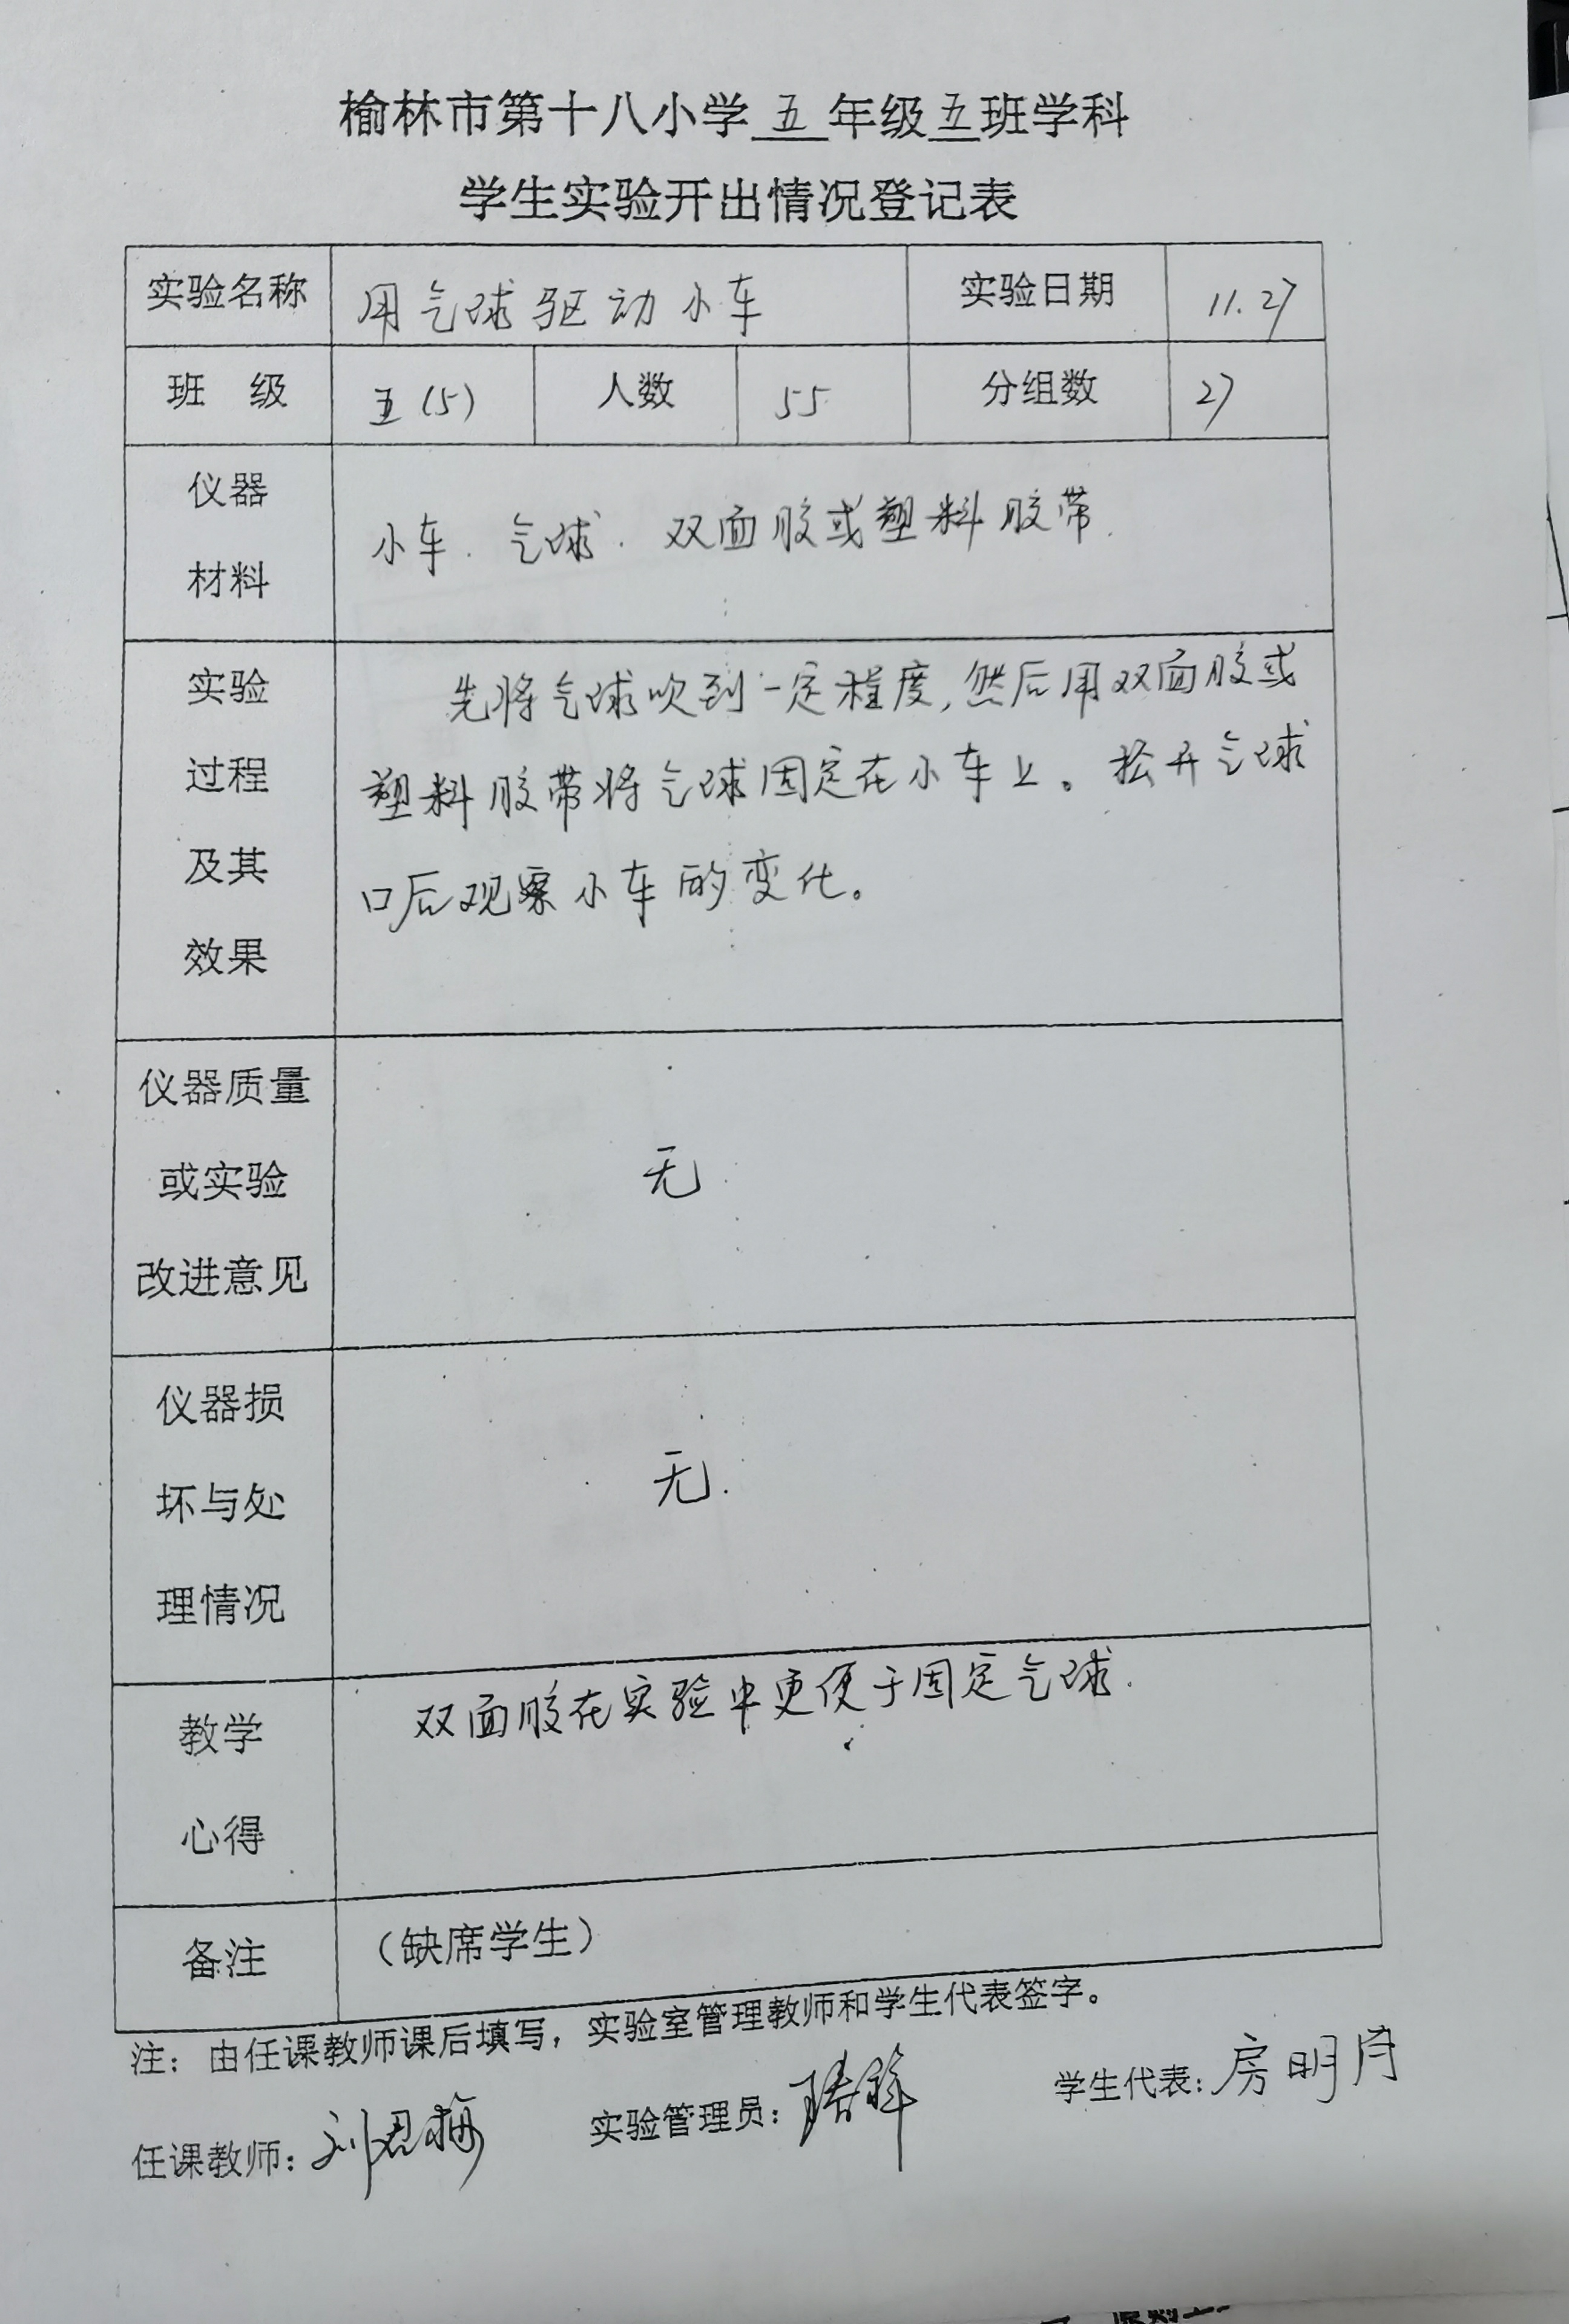 榆林市第十八小学 五 年级 五 班学科
学生实验开出情况登记表
实验名称 用气球驱动小车 实验日期 11.27
班 级 五(5) 人数 55 分组数 27
仪器
材料
小车. 气球. 双面胶或塑料胶带.
实验
过程
及其
效果
先将气球吹到一定程度,然后用双面胶或
塑料胶带将气球固定在小车上。松开气球
口后观察小车的变化。
仪器质量
或实验
改进意见
无
仪器损
坏与处
理情况
无.
教学
心得
双面胶在实验中更便于固定气球.
备注 （缺席学生）
注：由任课教师课后填写，实验室管理教师和学生代表签字。
任课教师: 刘君梅 实验管理员: 学生代表: 房明月